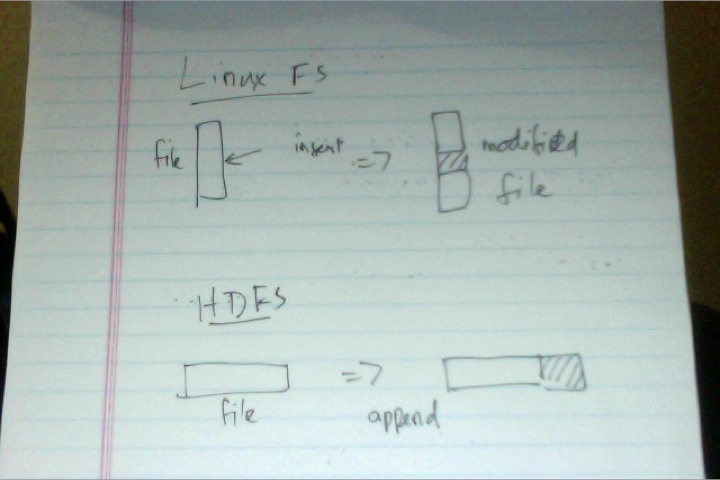 Linux FS
file insert => modified
file
HDFS
=>
file append